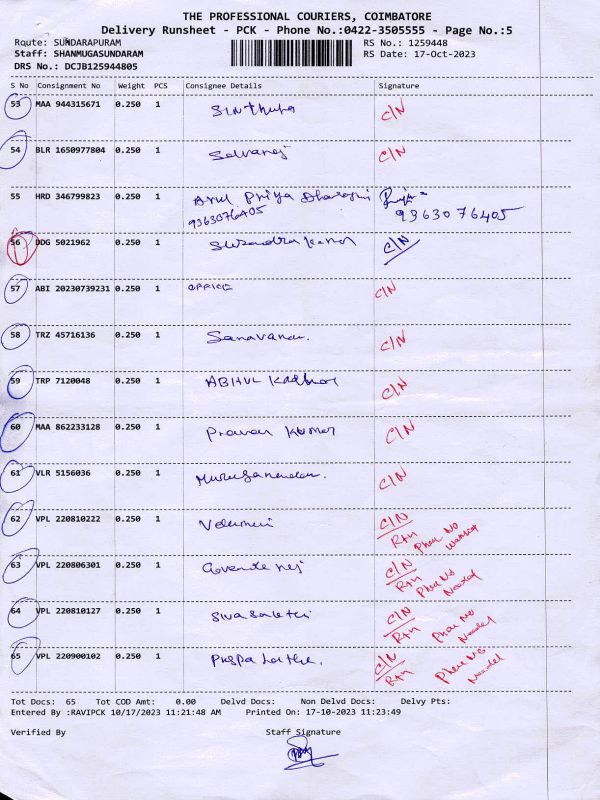 THE PROFESSIONAL COURIERS, COIMBATORE
Delivery Runsheet - PCK - Phone No.:0422-3505555 - Page No.:5
Route: SUNDARAPURAM RS No.: 1259448
Staff: SHANMUGASUNDARAM RS Date: 17-Oct-2023
DRS No.: DCJB125944805
S No Consignment No Weight PCS Consignee Details Signature
53 MAA 944315671 0.250 1 C/N
54 BLR 1650977804 0.250 1 Selvaraj C/N
55 HRD 346799823 0.250 1 Arul Priya Dharshini
9363076405 9363076405
56 DDG 5021962 0.250 1 C/N
57 ABI 20230739231 0.250 1 OFFICE C/N
58 TRZ 45716136 0.250 1 Saravanan. C/N
59 TRP 7120048 0.250 1 C/N
60 MAA 862233128 0.250 1 Pravan Kumar C/N
61 VLR 5156036 0.250 1 Muruganandan. C/N
62 VPL 220810222 0.250 1 Velumani C/N
Rtn Phone No
63 VPL 220806301 0.250 1 C/N
Rtn Phone No Needed
64 VPL 220810127 0.250 1 C/N
Rtn Phone No Needed
65 VPL 220900102 0.250 1 Puspa C/N
Rtn Phone No Needed
Tot Docs: 65 Tot COD Amt: 0.00 Delvd Docs: Non Delvd Docs: Delvy Pts:
Entered By :RAVIPCK 10/17/2023 11:21:48 AM Printed On: 17-10-2023 11:23:49
Verified By Staff Signature